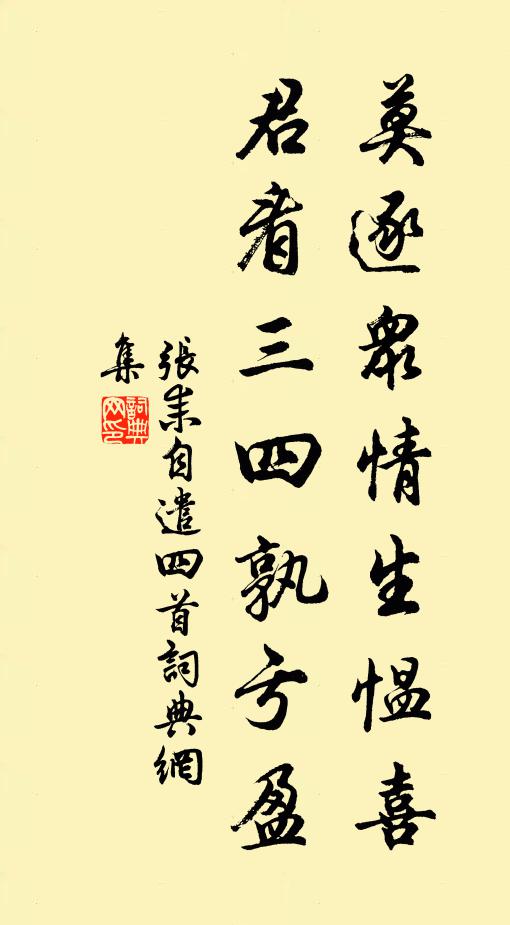 莫逐衆情生愠喜
君看三四孰亏盈
張耒自遣四首詞典網
集
詞典
网印